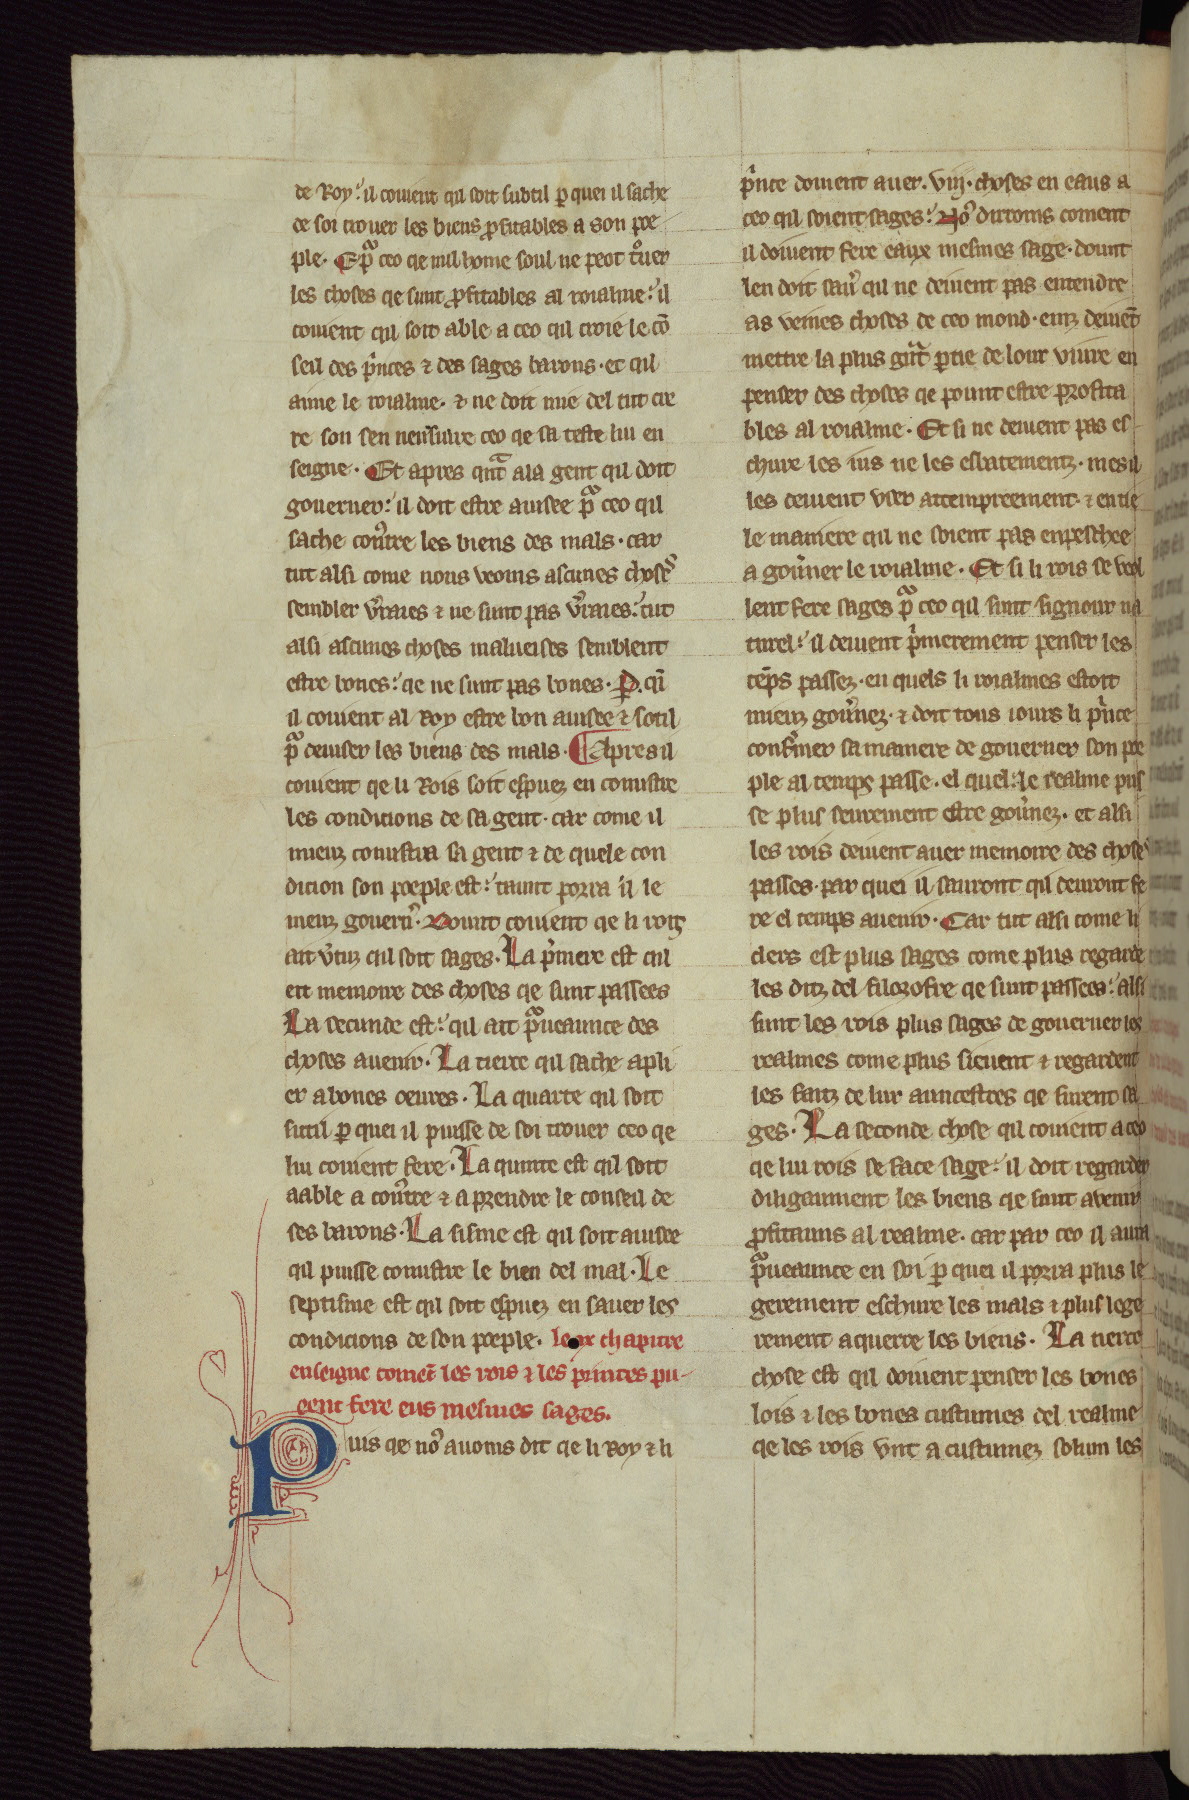 de Roy. il couient qil soit subtil ꝑ quei il sache
de soi trouer les biens ꝓfitables a son poe
ple. E pᵃ ceo qe nul home soul ne peot tͦuer
les choses qe sunt ꝓfitables al roialme. il
couient qil soit able a ceo qil croie le cō
seil des pⁱnces ⁊ des sages barons. et qil
aime le roialme. ⁊ ne doit mie del tut cre
re son sen nensuiure ceo qe sa teste lui en
seigne. Et apres qntᵃ ala gent qil doit
gouerner. il doit estre auisee pᵃ ceo qil
sache con̾tre les biens des mals. car
tut alsi come nous veoms ascunes choses
sembler v̾raies ⁊ ne sunt pas v̾raies. tut
alsi ascunes choses malueises semblent
estre bones. qe ne sunt pas bones. P. qi
il couient al Roy estre bon auisee ⁊ sotil
pᵃ deuiser les biens des mals. Apres il
couient qe li Rois soit espuez en conustre
les condicions de sa gent. car come il
mieuz conustra sa gent ⁊ de quele con
dicion son poeple est. taunt porra il le
mieuz gouern̾. Dount couient qe li rois
ait v̾tuz qil soit sages. La pⁱmere est qil
eit memoire des choses qe sunt passees
La secunde est. qil ait pᵃueaunce des
choses auenir. La tierce qil sache apli
er a bones oeures. La quarte qil soit
sutil ꝑ quei il puisse de soi trouer ceo qe
lui couient fere. La quinte est qil soit
aable a con̾tre ⁊ a prendre le conseil de
ses barons. La sisme est qil soit auisee
qil puisse conustre le bien del mal. Le
septisme est qil soit espuez en sauer les
condicions de son poeple. le ix chapitre
enseigne coment les rois ⁊ les princes pu-
eent fere eus mesmes sages.
Puis qe noꝰ auoms dit qe li Roy ⁊ li
pⁱnce doiuent auer. viij. choses en eaus a
ceo qil soient sages. Noꝰ dirroms coment
il doiuent fere eaux mesmes sage. dount
len doit sau̾ qil ne deiuent pas entendre
as veines choses de ceo mond. einz deiuēt
mettre la plus gᵃnt ꝑtie de lour viure en
penser des choses qe pount estre profita
bles al roialme. Et si ne deiuent pas es-
chure les ius ne les esbatementz. mes il
les deiuent vser attempreement. ⁊ en tie
le maniere qil ne soient pas enpeschee
a gou̾ner le roialme. Et si li rois se voil
lent fere sages pᵃ ceo qil sunt signour na
turel. il deiuent pⁱmerement penser les
tēps passez. en quels li roialmes estoit
mieuz gou̾nez. ⁊ doit tous iours li pⁱnce
confⁱmer sa maniere de gouerner son poe
ple al temps passe. el quel le realme puis
se plus seurement estre gou̾nez. et alsi
les rois deiuent auer memoire des chose
passes. par quei il sauront qil deuront fe
re el temps auenir. Car tut alsi come li
clers est plus sages come plus regarde
les ditz del filozofre qe sunt passees. alsi
sunt les rois plus sages de gouerner les
realmes come plus sieuent ⁊ regardent
les faitz de lur auncestres qe furent sa
ges. La seconde chose qil couient a ceo
qe lui rois se face sage. il doit regarder
diligaument les biens qe sunt auenir
ꝓfitauns al realme. car par ceo il aura
pᵃueaunce en soi ꝑ quei il porra plus le
gerement eschure les mals ⁊ plus lege
rement aquerre les biens. La tierce
chose est qil doiuent penser les bones
lois ⁊ les bones custumes del realme
qe les rois vnt acustumez solum les